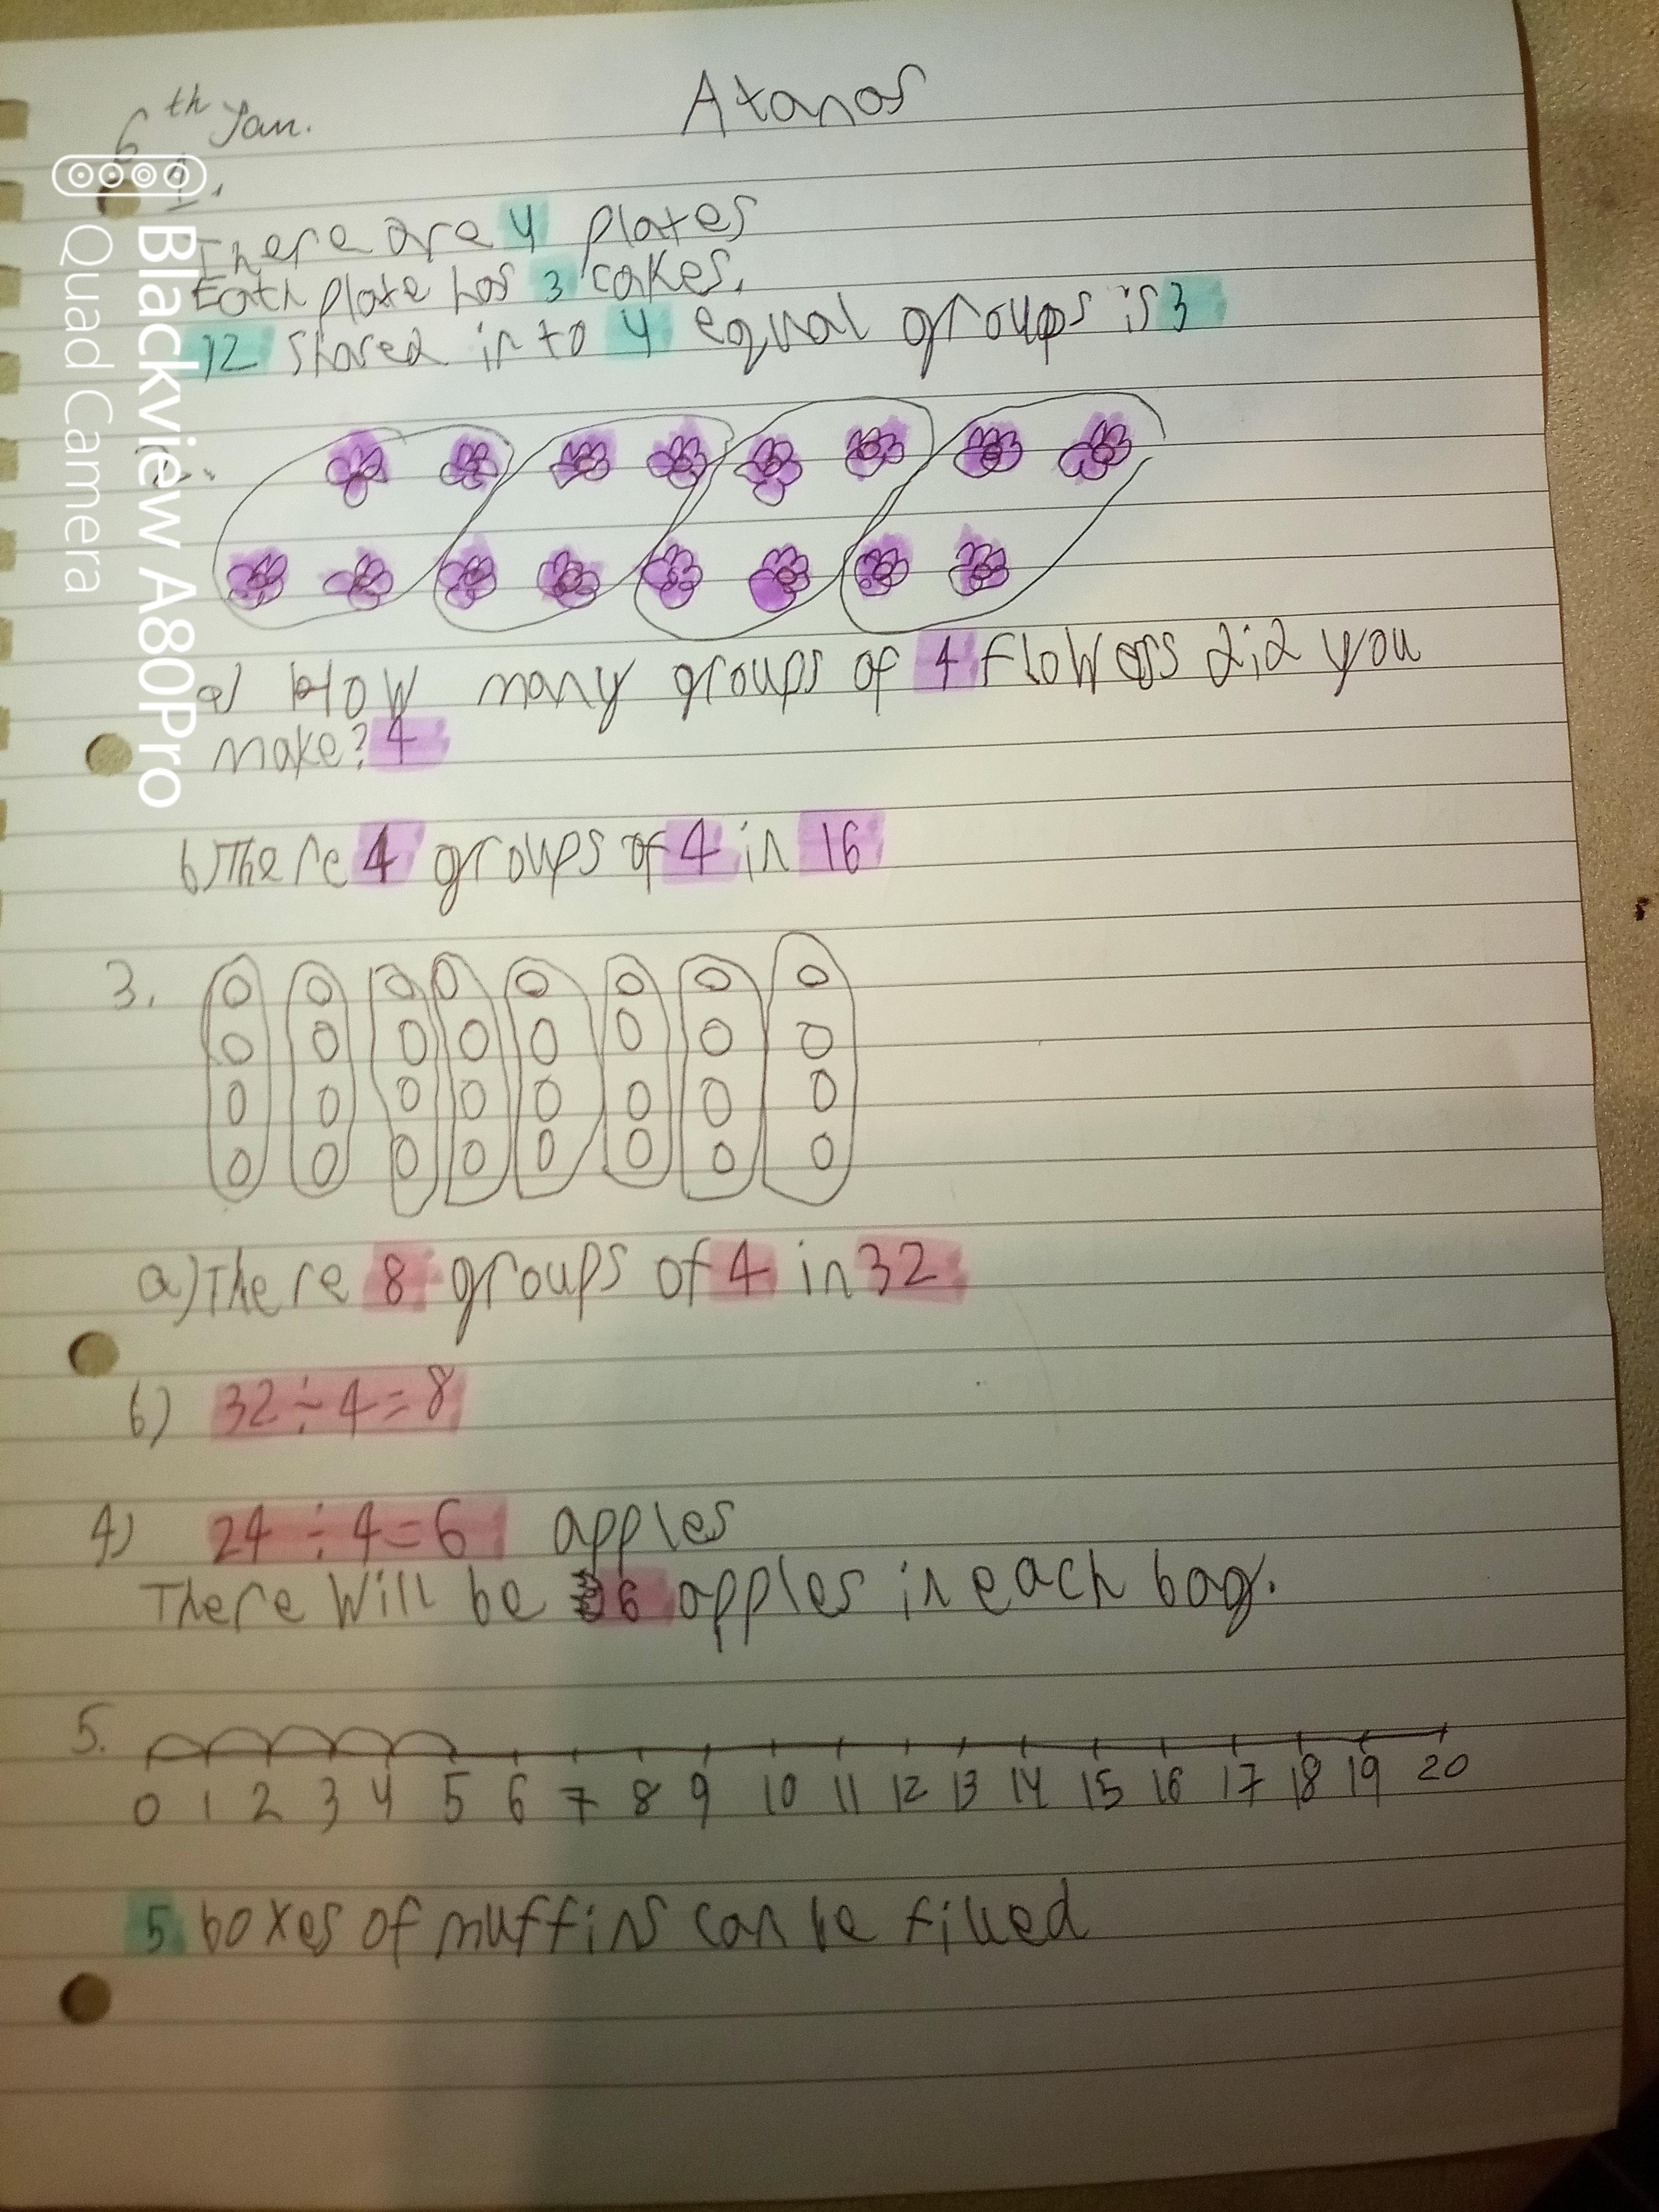 6th Jan.
Atanas
1.
There are 4 plates
Each plate has 3 cakes.
12 shared in to 4 equal groups is 3
a) How many groups of 4 flowers did you
make? 4
b) There 4 groups of 4 in 16
3.
a) There 8 groups of 4 in 32
b) 32 ÷ 4 = 8
4) 24 ÷ 4 = 6 apples
There will be 6 apples in each bag.
5.
0 1 2 3 4 5 6 7 8 9 10 11 12 13 14 15 16 17 18 19 20
5 boxes of muffins can be filled
Blackview A80Pro
Quad Camera